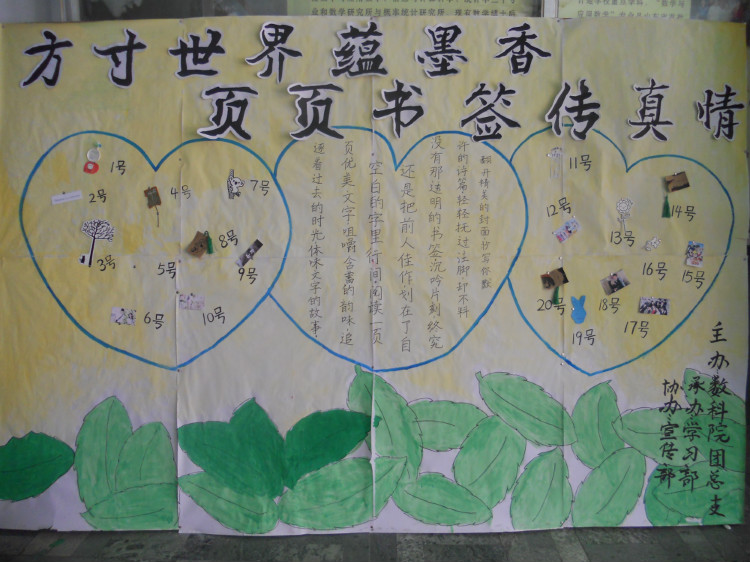 方寸世界蕴墨香
页页书签传真情
翻开精美的封面抄写你默
许的诗篇轻轻抚过注脚却不料
没有那透明的书签沉吟片刻终究
还是把前人佳作划在了自
·空白的字里行间·阅读一页
页优美文字咀嚼含蓄的韵味·追
逐着过去的时光体味文字的故事·
1号
2号
3号
4号
5号
6号
7号
8号
9号
10号
11号
12号
13号
14号
15号
16号
17号
18号
19号
20号
主办数科院团总支
承办学习部
协办宣传部